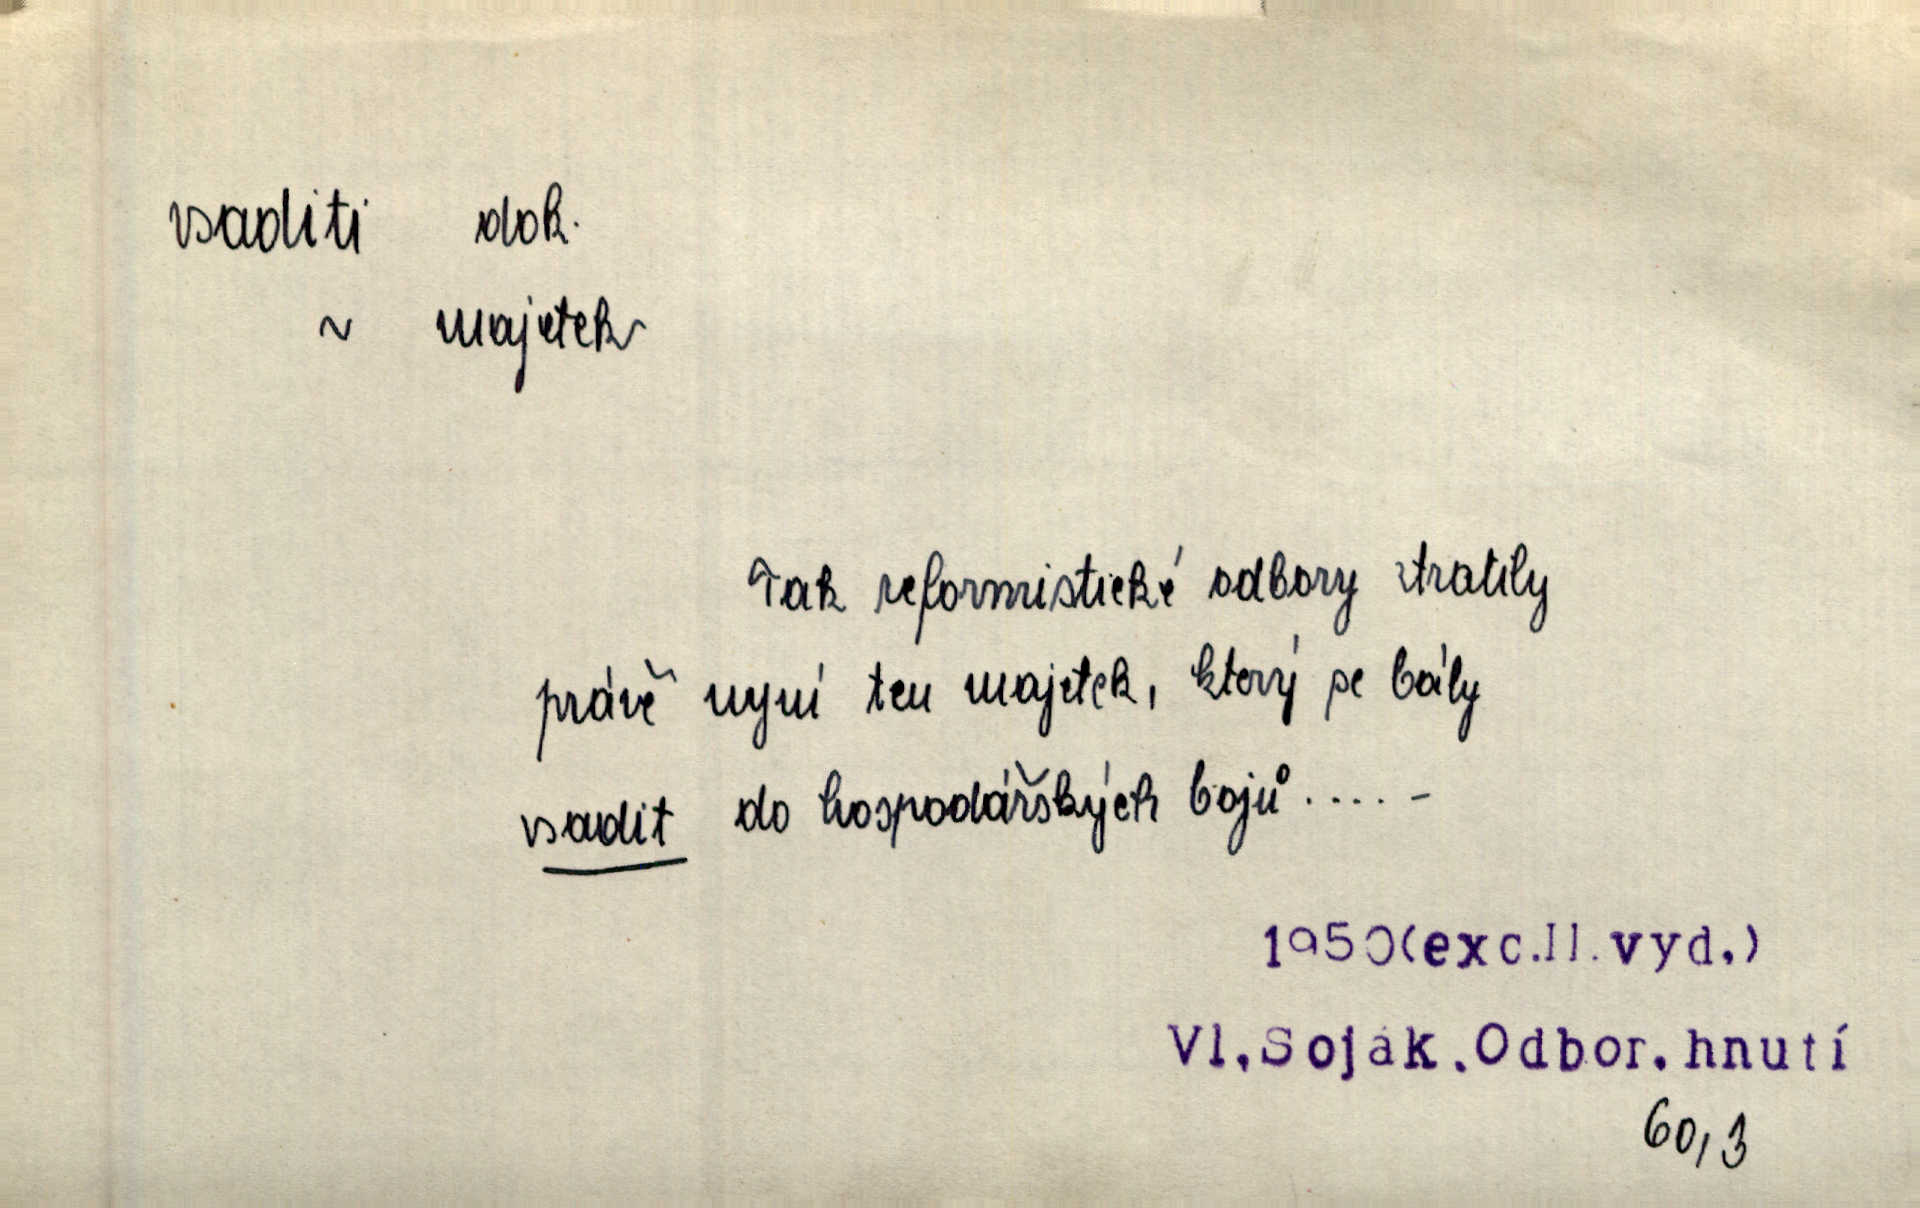 vsaditi dok.
~ majetek
Tak reformistické odbory ztratily
právě nyní ten majetek, který se bály
vsadit do hospodářských bojů..... -
1950(exc.II.vyd.)
Vl.Soják.Odbor.hnutí
60,3